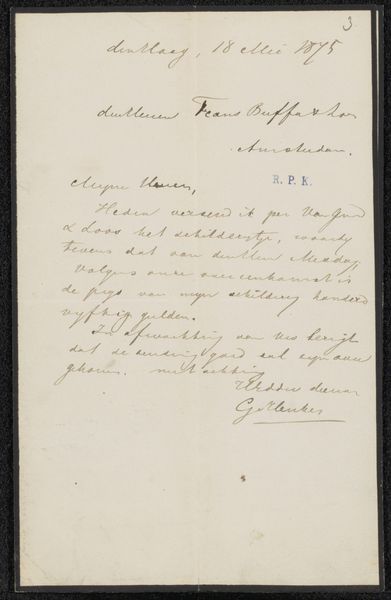 3
den Haag, 18 Mei 1875
den Heeren Frans Buffa & Zoon
Amsterdam.
R. P. K.
Mijne Heeren,
Heden verzend ik per Van Gend
& Loos het schilderijtje, waarbij
tevens dat van den Heer Mesdag,
volgens onze overeenkomst is
de prijs van mijn schilderij honderd
vijftig gulden.
In afwachting van Uw berigt
dat de zending goed zal zijn over
gekomen. met achting
UEd dw dienaar
G Henkes